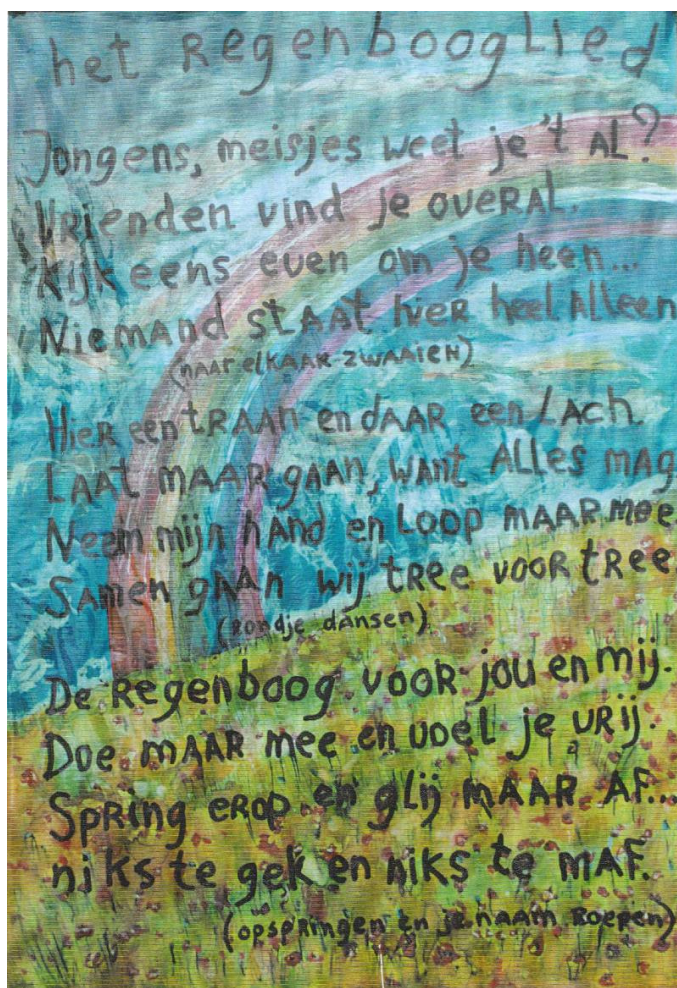 het Regenbooglied
Jongens, meisjes weet je 't AL?
Vrienden vind je overAL.
Kijk eens even om je heen...
Niemand staat hier heel Alleen
(naar elkaar zwaaien)
Hier een traan en daar een lach
Laat maar gaan, want alles mag
Neem mijn hand en loop maar mee
Samen gaan wij tree voor tree
(Rondje dansen)
De Regenboog voor jou en mij.
Doe maar mee en voel je vrij.
Spring erop en glij maar af...
niks te gek en niks te maf.
(opspringen en je naam roepen)